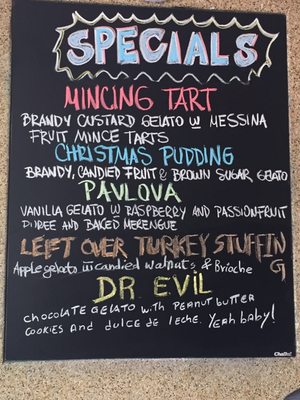 SPECIALS
MINCING TART
BRANDY CUSTARD GELATO W MESSINA
FRUIT MINCE TARTS
CHRISTMAS PUDDING
BRANDY, CANDIED FRUIT & BROWN SUGAR GELATO
PAVLOVA
VANILLA GELATO W RASPBERRY AND PASSIONFRUIT
PUREE AND BAKED MERENGUE
LEFT OVER TURKEY STUFFIN
G
Apple gelato w candied walnuts & Brioche
DR. EVIL
CHOCOLATE GELATO WITH PEANUT BUTTER
COOKIES AND DULCE DE LECHE. Yeah baby!